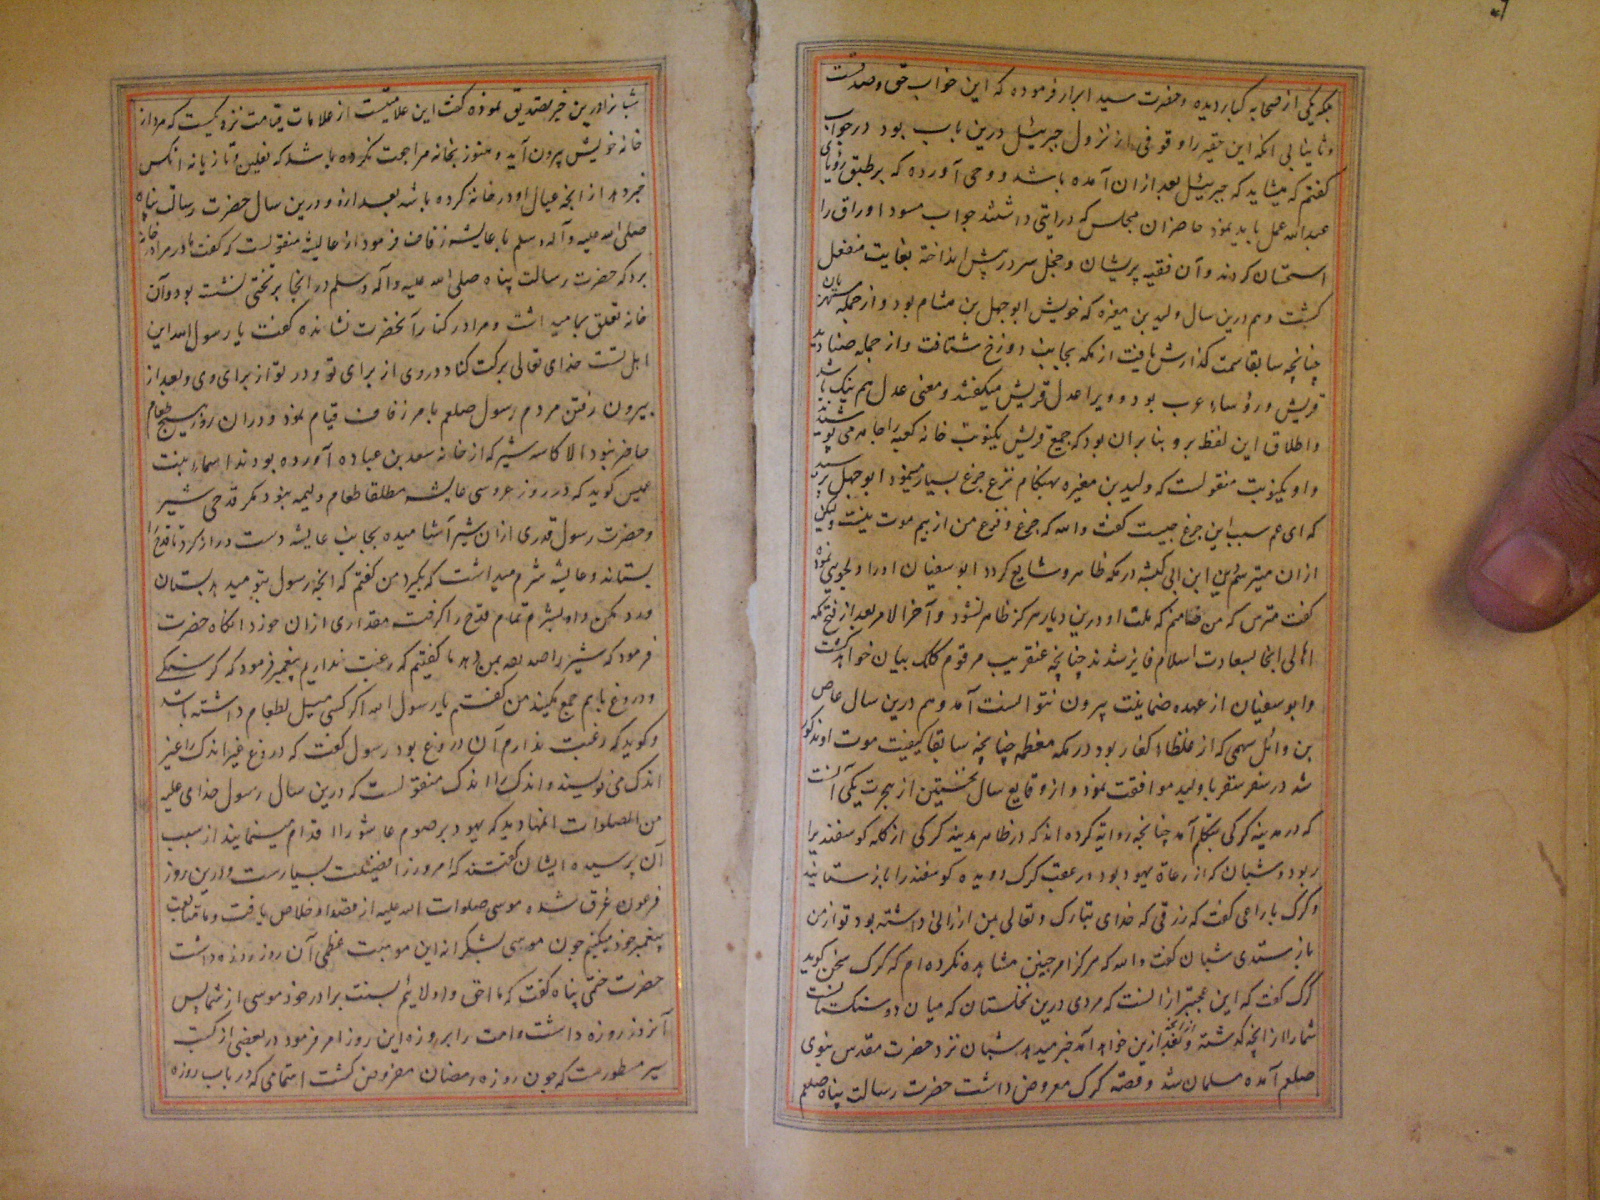 بلکه یکی از صحابه کبار دیده و حضرت سید ابرار فرموده که این خواب حق و صدقست
و ثانیا بی آنکه این حقیر را وقوفی از نزول جبرئیل درین باب بود در جواب
گفتم که میشاید که جبرئیل بعد از ان آمده باشد و وحی آورده که بر طبق رؤیای
عبدالله عمل باید نمود حاضران مجلس که درایتی داشتند جواب مسود اوراق را
استحسان کردند و آن فقیه پریشان و خجل سر در پیش انداخته بغایت منفعل
گشت و هم درین سال ولید بن مغیره که خویش ابوجهل بن هشام بود و از جمله مستهزیان
چنانچه سابقا سمت گذارش یافت از مکه بجانب دوزخ شتافت و از جمله صنادید
قریش و رؤساء عرب بود و ویرا عدل قریش میگفتند و معنی عدل هم نیک باشد
و اطلاق این لفظ برو بنا بران بود که جمیع قریش یکنوبت خانه کعبه را جامه می پوشیدند
و او یکنوبت منقولست که ولید بن مغیره بهنگام نزع جزع بسیار مینمود ابوجهل پرسید
که ای عم سبب این جزع چیست گفت والله که جزع و فزع من از بیم موت نیست ولیکن
ازان میترسم که دین ابن ابی کبشه در مکه ظاهر و شایع گردد ابوسفیان او را دلجویی نموده
گفت مترس که من ضامنم که ملت او درین دیار هرگز ظاهر نشود و آخر الامر بعد از فتح مکه
اهالی انجا بسعادت اسلام فایز شدند چنانچه عنقریب مرقوم کلک بیان خواهد گشت
و ابوسفیان از عهده ضمانیت بیرون نتوانست آمد و هم درین سال عاص
بن وائل سهمی که از غلظاء کفار بود در مکه معظمه چنانچه سابقا کیفیت موت او مذکور
شد در سفر سقر با ولید موافقت نمود و از وقایع سال نخستین از هجرت یکی آنست
که در مدینه گرگی بتکلم آمد چنانچه روایة کرده اند که در ظاهر مدینه گرگی از گله گوسفندیرا
ربود و شبان که از رعاة یهود بود در عقب گرگ دویده گوسفند را باز ستانید
و گرگ با راعی گفت که رزقی که خدای تبارک و تعالی بمن ارزانی داشته بود تو از من
باز ستدی شبان گفت والله که هرگز امر چنین مشاهده نکرده ام که گرگ سخن گوید
گرگ گفت که این عجبتر ازانست که مردی درین نخلستان که میان دو سنگستانست
شما را از انچه گذشته و از انچه بعد ازین خواهد آمد خبر میدهد شبان نزد حضرت مقدس نبوی
صلعم آمده مسلمان شد و قصه گرگ معروض داشت حضرت رسالت پناه صلعم
شبانرا درین خبر تصدیق نموده گفت این علامتیست از علامات قیامت نزدیکست که مرد از
خانه خویش بیرون آید و هنوز بخانه مراجعت نکرده باشد که نعلین و تازیانه انکس
خبر دهد از انچه عیال او در خانه کرده باشد بعد ازو و درین سال حضرت رسالت پناه
صلی الله علیه و آله وسلم با عایشه زفاف فرمود از عایشه منقولست که گفت مادر مرا در خانه
برد که حضرت رسالت پناه صلی الله علیه و آله وسلم در انجا بر تختی نشسته بود و آن
خانه تعلق بما میداشت و مرا در کنار آنحضرت نشانده گفت یا رسول الله این
اهل تست خدای تعالی برکت کناد در وی از برای تو و در تو از برای وی و بعد از
بیرون رفتن مردم رسول صلعم بامر زفاف قیام نمود و دران روز هیچ طعام
حاضر نبود الا کاسه شیر که از خانه سعد بن عباده آورده بودند اسماء بنت
عمیس گوید که در روز عروسی عایشه مطلقا طعام ولیمه نبود مگر قدحی شیر
و حضرت رسول قدری ازان شیر آشامیده بجانب عایشه دست دراز کرد تا قدح را
بستاند و عایشه شرم میداشت که بگیرد من گفتم که انچه رسول بتو میدهد بستان
ورد مکن و او بشرم تمام قدح را گرفته مقداری ازان خورد انگاه حضرت
فرمود که شیر را بمن دهد ما گفتیم که رغبت نداریم پیغمبر فرمود که گرسنگی
و دروغ باهم جمع مکنید من گفتم یا رسول الله اگر کسی میل بطعام داشته باشد
و گوید که رغبت ندارم آن دروغ بود رسول گفت که دروغ غیر اندک را غیر
اندک می نویسند و اندک را اندک منقولست که درین سال رسول خدای علیه
من الصلوات انماها دید که یهود بر صوم عاشورا اقدام مینمایند از سبب
آن پرسیده ایشان گفتند که امروز را فضیلت بسیارست و درین روز
فرعون غرق شده موسی صلوات الله علیه از قصد او خلاص یافت و ما متابعت
پیغمبر خود میکنیم چون موسی بشکرانه این موهبت عظمی آن روز روزه داشت
حضرت ختمی پناه گفت که ما احق و اولاییم بسنت برادر خود موسی از شما پس
آنروز روزه داشت و امت را بروزه این روز امر فرمود در بعضی از کتب
سیر مسطورست که چون روزه رمضان مفروض گشت اهتمامی که در باب روزه